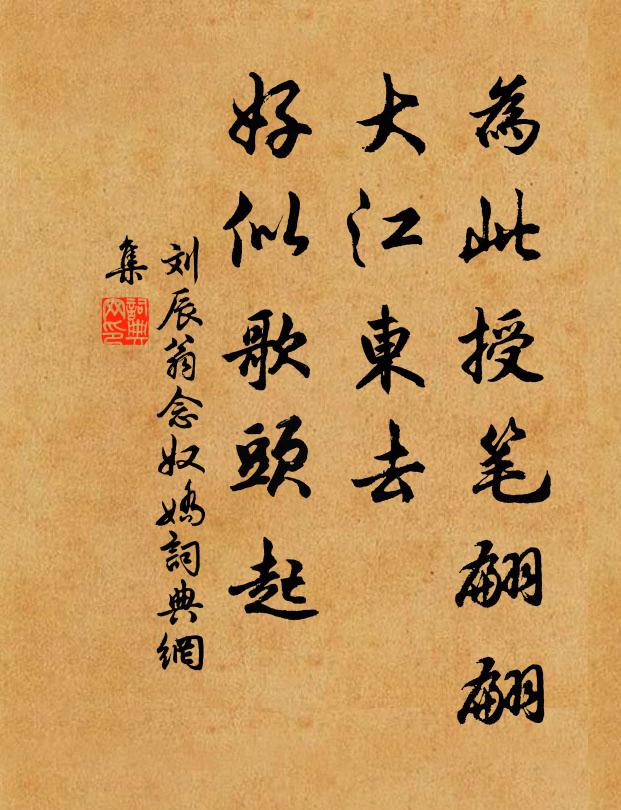 為此授笔翩翩
大江東去
好似歌頭起
刘辰翁念奴嬌詞典網
集
詞典網印